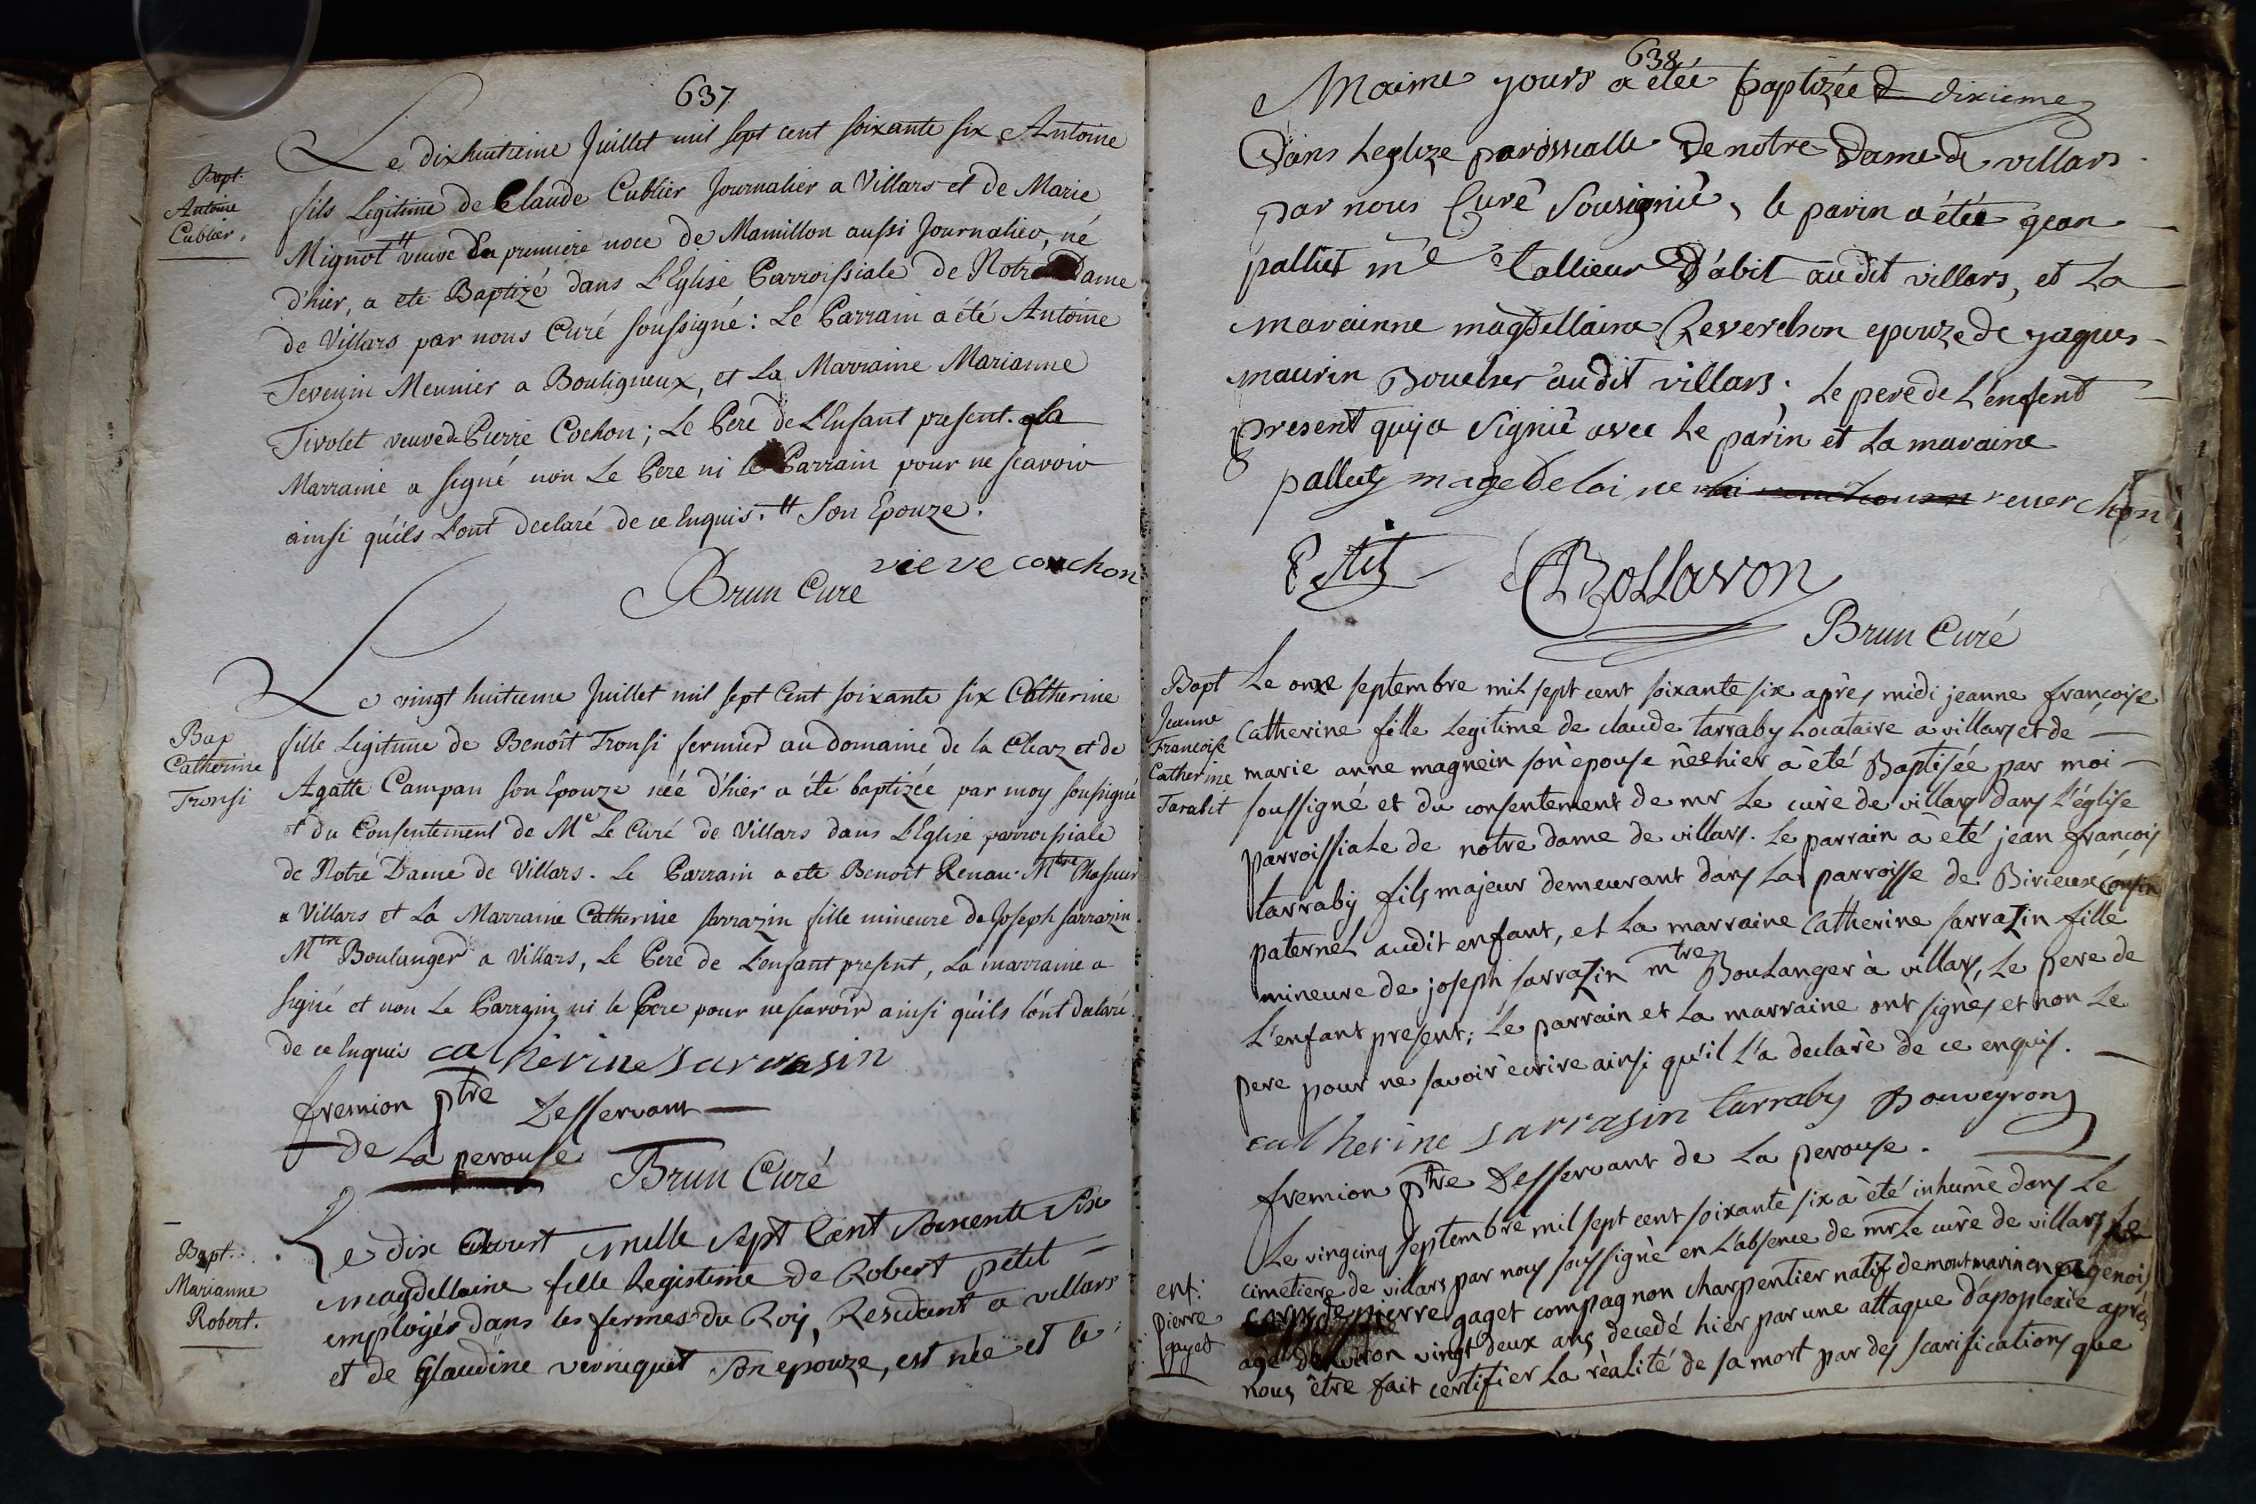 637
Le dixhuitieme Juillet mil sept cent soixante six Antoine
Bapt.
Antoine
Cublier.
fils Legitime de Claude Cublier Journalier a Villars et de Marie
Mignot # veuve En premiere noce de Mamillon aussi Journalier, né
d'hier, a eté Baptizé dans L'Eglise Parroissiale de Notre Dame
de Villars par nous Curé soussigné: Le Parrain a été Antoine
Tevenin Meunier a Bouligneux, et La Marraine Marianne
Tivolet veuve de Pierre Cochon; Le Pere de L'Enfant present. La
Marraine a signé non Le Pere ni le Parrain pour ne scavoir
ainsi qu'ils L'ont declaré de ce Enquis. # Son Epouze.
vieve couchon
Brun Curé
Le vingt huitieme Juillet mil sept Cent soixante six Catherine
Bap
Catherine
Tronsi
fille Legitime de Benoît Tronsi fermier au domaine de la Chaz et de
Agatte Campan son Epouze née d'hier a été baptizée par moy soussigné
et du Consentement de Mr Le Curé de Villars dans L'Eglise parroissiale
de Notre Dame de Villars. Le Parrain a ete Benoit Renau Mtre Chasseur
a Villars et La Marraine Catherine sarrazin fille mineure de Joseph sarrazin
Mtre Boulanger a Villars, Le Pere de L'enfant present, La marraine a
signé et non Le Parrain ni le Pere pour ne scavoir ainsi qu'ils l'ont declaré
de ce Enquis catherine sarrasin
fremion ptre Desservant
de La perouse Brun Curé
Le dix Aoust mille sept Cent Soixente Six
Bapt.
Marianne
Robert.
magdellaine fille Legistime de Robert petit
employés dans les fermes du Roy, Residant a villars
et de Glaudine verniquet son epouze, est née et le
638
Maime yours a étée baptizée dixieme
Dans Leglize parossialle De notre Dame de villars
par nous Curé Sousignié, le parin a étée jean
palliet me tallieur D'abit audit villars, et La
marainne magdellaine Reverchon epouze de yaques
maurin Boucher audit villars; Le pere de L'enfent
present qui ja Signié avec Le parin et La maraine
palliet magdeloi ne reverchon
Petit Bollavon
Brun Curé
Bapt
Jeanne
Francoise
Catherine
Tarabit
Le onze septembre mil sept cent soixante six après midi jeanne françoise
catherine fille Legitime de claude tarraby Locataire a villars et de
marie anne magnein son épouse née hier à été Baptisée par moi
soussigné et du consentement de mr Le curé de villars dans L'église
parroissiale de notre dame de villars. Le parrain à été jean françois
tarraby fils majeur demeurant dans La parroisse de Birieux Cousin
paternel audit enfant, et La marraine Catherine sarrazin fille
mineure de joseph sarrazin mtre Boulanger à villars, Le pere de
L'enfant present; Le parrain et La marraine ont signés et non Le
pere pour ne savoir écrire ainsi qu'il L'a declaré de ce enquis.
catherine sarrasin tarraby Bouveyron
fremion ptre Desservant de La perouse.
Le vingcinq septembre mil sept cent soixante six à été inhumé dans Le
ent:
Pierre
gayet
cimetiere de villars par nous soussigné en L'absence de mr Le curé de villars Le
corps de pierre gaget compagnon charpentier natif de montmarin en agenois
agé d'environ vingt deux ans decedé hier par une attaque d'apoplexie après
nous être fait certifier La réalité de sa mort par des scarifications que